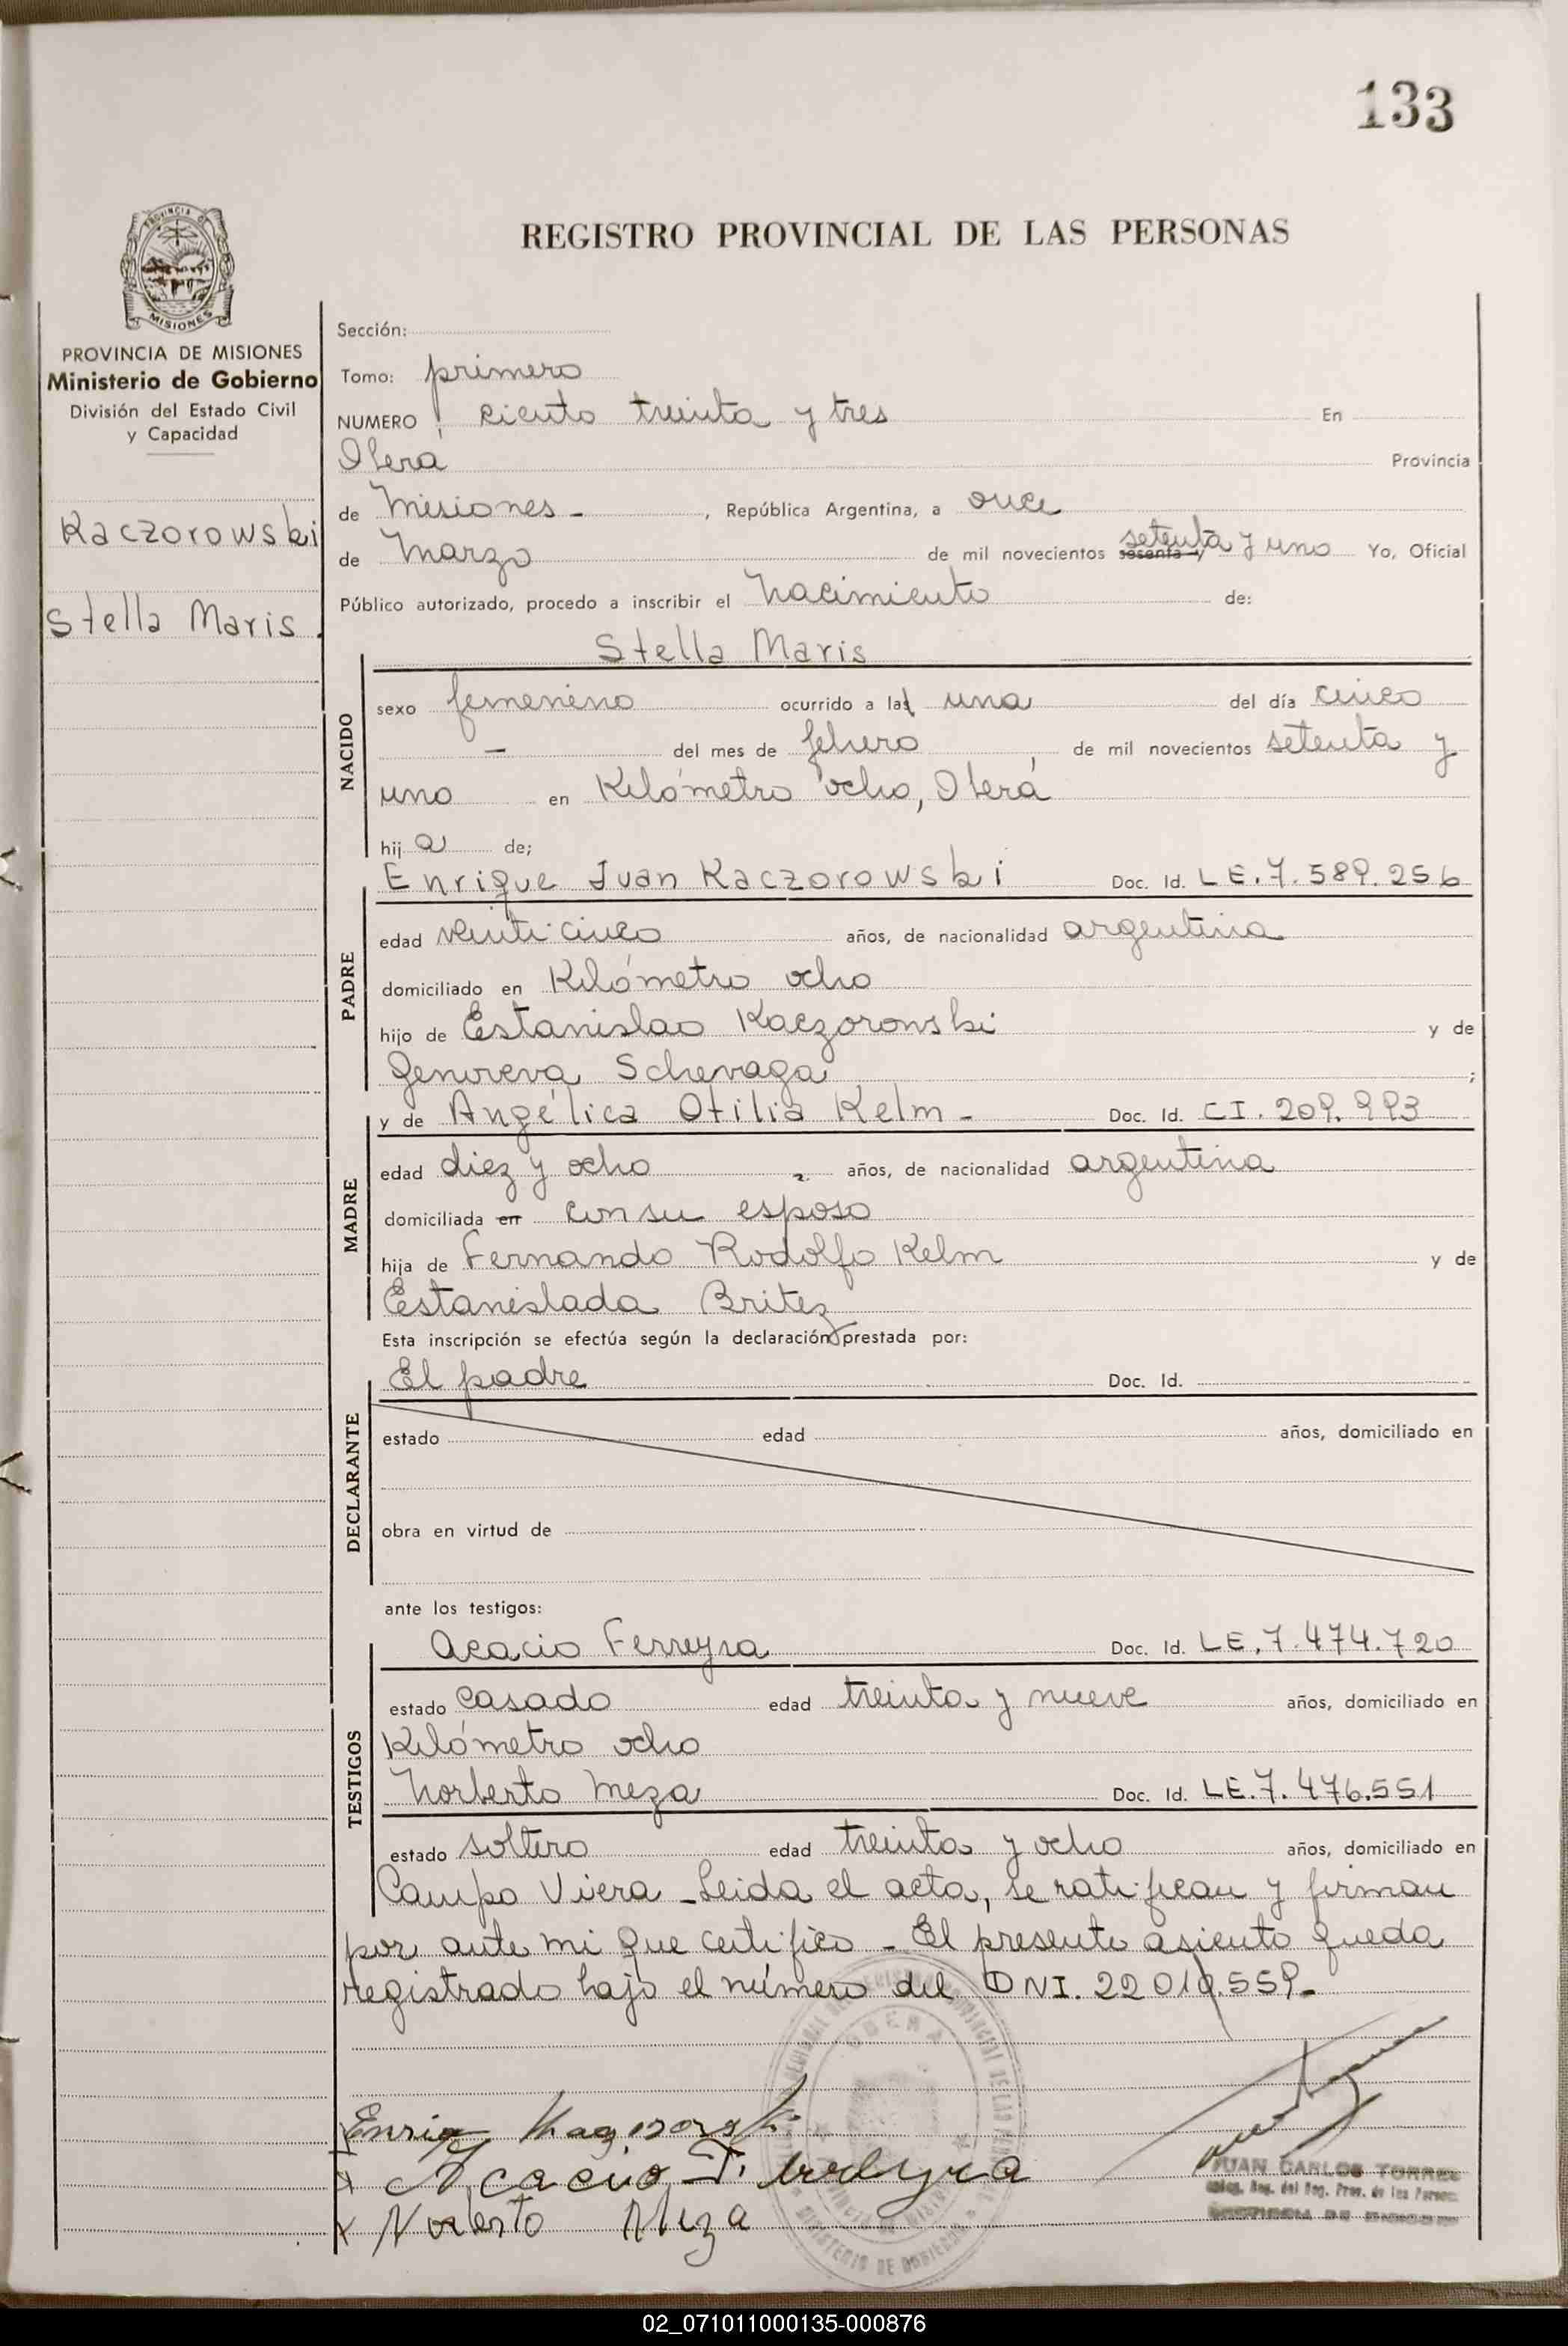 133
REGISTRO PROVINCIAL DE LAS PERSONAS
MISIONES
PROVINCIA DE MISIONES
Ministerio de Gobierno
División del Estado Civil
y Capacidad
Kaczorowski
Stella Maris
Sección:
Tomo: primero
NUMERO ciento treinta y tres En
Oberá Provincia
de Misiones - , República Argentina, a once
de Marzo de mil novecientos sesenta y setenta y uno Yo, Oficial
Público autorizado, procedo a inscribir el Nacimiento de:
Stella Maris
NACIDO
sexo femenino ocurrido a las una del día cinco
- del mes de febrero , de mil novecientos setenta y
uno en Kilómetro ocho, Oberá
hij a de;
Enrique Juan Kaczorowski Doc. Id. LE. 7.589.256
PADRE
edad veinticinco años, de nacionalidad argentina
domiciliado en Kilómetro ocho
hijo de Estanislao Kaczorowski y de
Genoveva Schevaga ;
y de Angélica Otilia Kelm - Doc. Id. CI. 209.993
MADRE
edad diez y ocho años, de nacionalidad argentina
domiciliada en con su esposo
hija de Fernando Rodolfo Kelm y de
Estanislada Britez
Esta inscripción se efectúa según la declaración prestada por:
El padre Doc. Id.
DECLARANTE
estado edad años, domiciliado en
obra en virtud de
ante los testigos:
Acacio Ferreyra Doc. Id. LE. 7.474.720
TESTIGOS
estado casado edad treinta y nueve años, domiciliado en
Kilómetro ocho
Norberto Meza Doc. Id. LE. 7.476.551
estado soltero edad treinta y ocho años, domiciliado en
Campo Viera - Leida el acta, se ratifican y firman
por ante mi que certifico - El presente asiento queda
registrado bajo el número del DNI. 22.019.559.-
Acacio
Norberto Meza
OBERA
MINISTERIO DE GOBIERNO
JUAN CARLOS TORRES
02_071011000135-000876